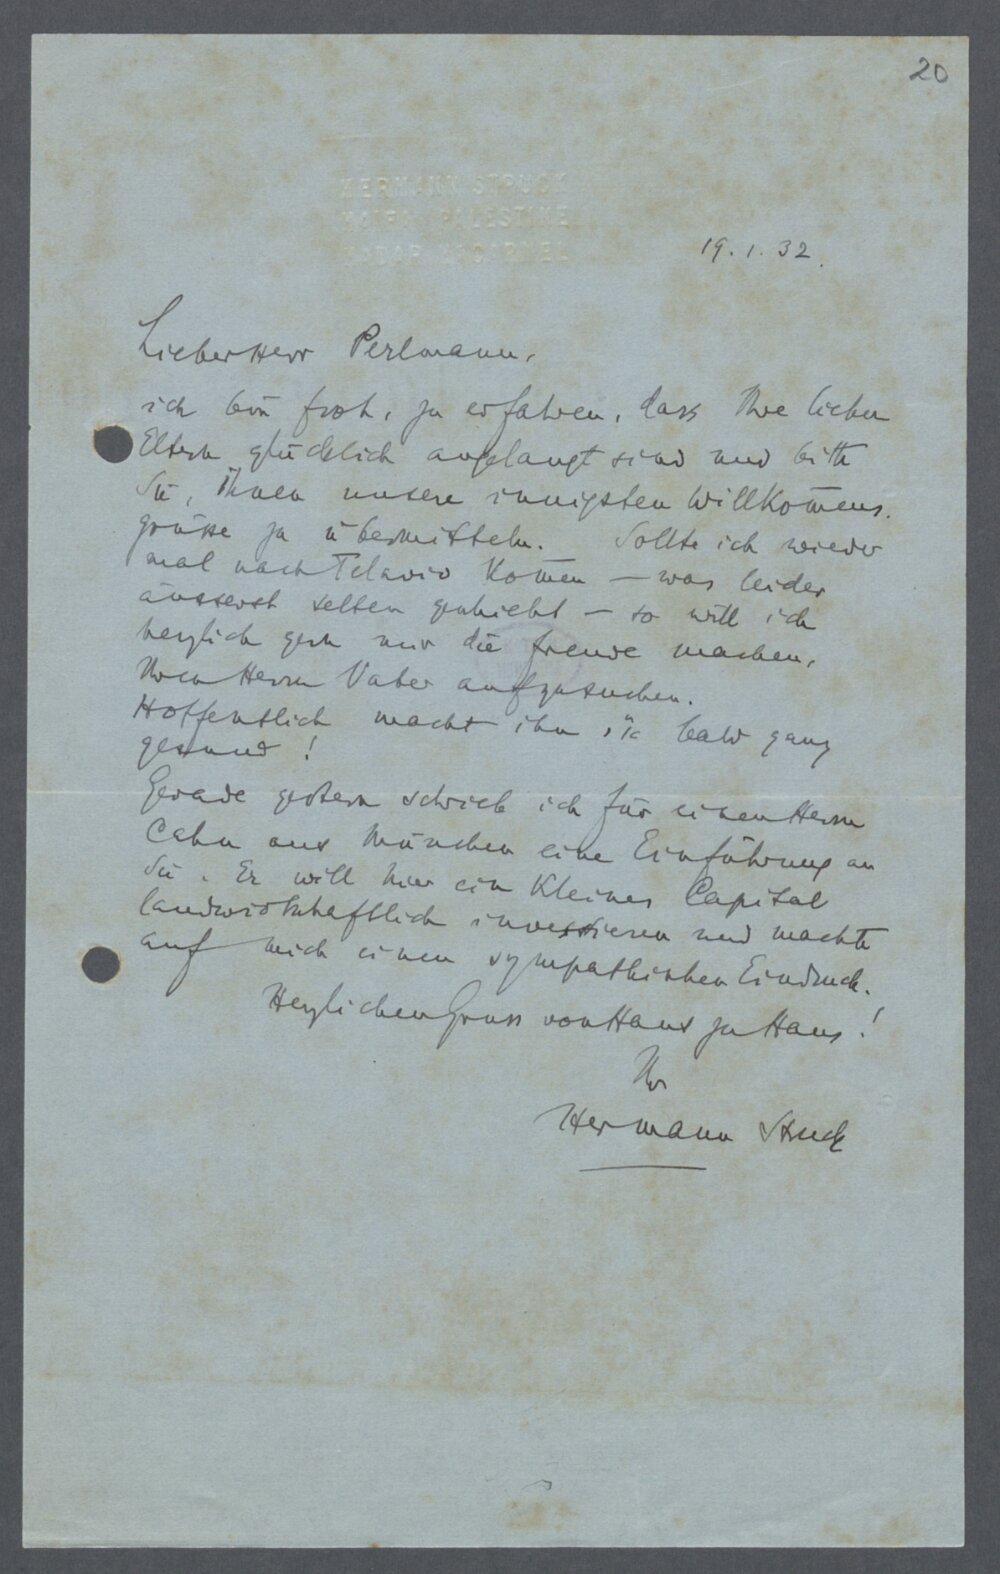 20
HERMANN STRUCK
HAIFA PALESTINE
HADAR HACARMEL
19.1.32.
Lieber Herr Perlmann,
ich bin froh, zu erfahren, dass Ihre lieben
Eltern glücklich angelangt sind und bitte
Sie, ihnen unsere innigsten Willkom̄ens-
grüsse zu übermitteln. Sollte ich wieder
mal nach Telaviv kom̄en – was leider
äusserst selten geschieht – so will ich
herzlich gern mir die Freude machen,
Ihren Herrn Vater aufzusuchen.
Hoffentlich macht ihn bald ganz
gesund!
Gerade gestern schrieb ich für einen Herrn
Cahn aus München eine Einführung an
Sie. Er will hier ein kleines Capital
landwirtschaftlich investieren und machte
auf mich einen sympathischen Eindruck.
Herzlichen Gruss von Haus zu Haus!
Ihr
Hermann Struck